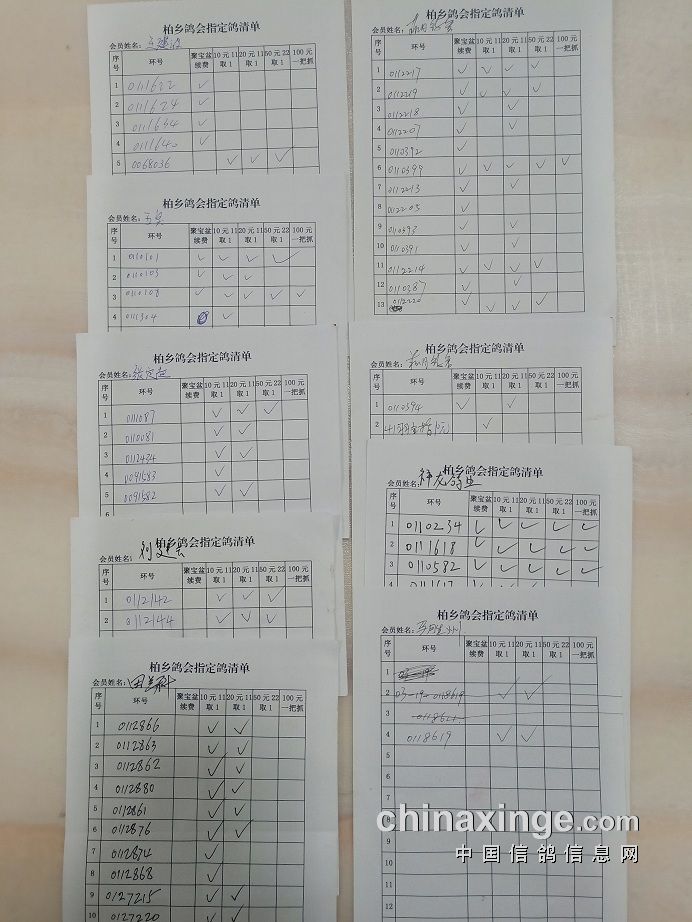 柏乡鸽会指定鸽清单
会员姓名:
序号 环号 聚宝盆续费 10元11取1 20元11取1 50元22取1 100元一把抓
1 0111622 ✓
2 0111624 ✓
3 0111634 ✓
4 0111640 ✓
5 0068036 ✓ ✓ ✓
柏乡鸽会指定鸽清单
会员姓名:
序号 环号 聚宝盆续费 10元11取1 20元11取1 50元22取1 100元一把抓
1 0110101 ✓ ✓ ✓ ✓
2 0110103 ✓ ✓ ✓
3 0110108 ✓ ✓ ✓ ✓ ✓
4 0111304 ✓
柏乡鸽会指定鸽清单
会员姓名:
序号 环号 聚宝盆续费 10元11取1 20元11取1 50元22取1 100元一把抓
1 0111087 ✓ ✓ ✓
2 0110081 ✓ ✓
3 0112434 ✓ ✓
4 0091583 ✓
5 0091582 ✓ ✓
6
柏乡鸽会指定鸽清单
会员姓名:
序号 环号 聚宝盆续费 10元11取1 20元11取1 50元22取1 100元一把抓
1 0112142 ✓ ✓ ✓
2 0112144 ✓ ✓ ✓
柏乡鸽会指定鸽清单
会员姓名:
序号 环号 聚宝盆续费 10元11取1 20元11取1 50元22取1 100元一把抓
1 0112866 ✓ ✓
2 0112863 ✓ ✓
3 0112862 ✓ ✓
4 0112880 ✓ ✓
5 0112861 ✓ ✓
6 0112876 ✓ ✓
7 0112874 ✓
8 0112868 ✓
9 0127215 ✓ ✓
10 0127220 ✓ ✓
会员姓名:
序号 环号 聚宝盆续费 10元11取1 20元11取1 50元22取1 100元一把抓
1 0112217 ✓ ✓ ✓ ✓
2 0112219 ✓ ✓ ✓ ✓
3 0112218 ✓ ✓
4 0112207 ✓ ✓
5 0110392 ✓
6 0110399 ✓ ✓ ✓ ✓ ✓
7 0112213 ✓ ✓
8 0112205 ✓
9 0110393 ✓ ✓
10 0110391 ✓ ✓
11 0112214 ✓ ✓ ✓ ✓
12 0110387 ✓ ✓
13 0112220 ✓ ✓ ✓ ✓
柏乡鸽会指定鸽清单
会员姓名:
序号 环号 聚宝盆续费 10元11取1 20元11取1 50元22取1 100元一把抓
1 0110394 ✓ ✓
2 ✓
柏乡鸽会指定鸽清单
会员姓名:
序号 环号 聚宝盆续费 10元11取1 20元11取1 50元22取1 100元一把抓
1 0110234 ✓ ✓ ✓ ✓ ✓
2 0111618 ✓ ✓ ✓ ✓ ✓
3 0110582 ✓ ✓ ✓ ✓ ✓
4 0111617
柏乡鸽会指定鸽清单
会员姓名:
序号 环号 聚宝盆续费 10元11取1 20元11取1 50元22取1 100元一把抓
1
2 03-19-0118619 ✓ ✓
3
4 0118619 ✓ ✓
5
6
7
8
9
10
11
12
chinaxinge.com
中国信鸽信息网